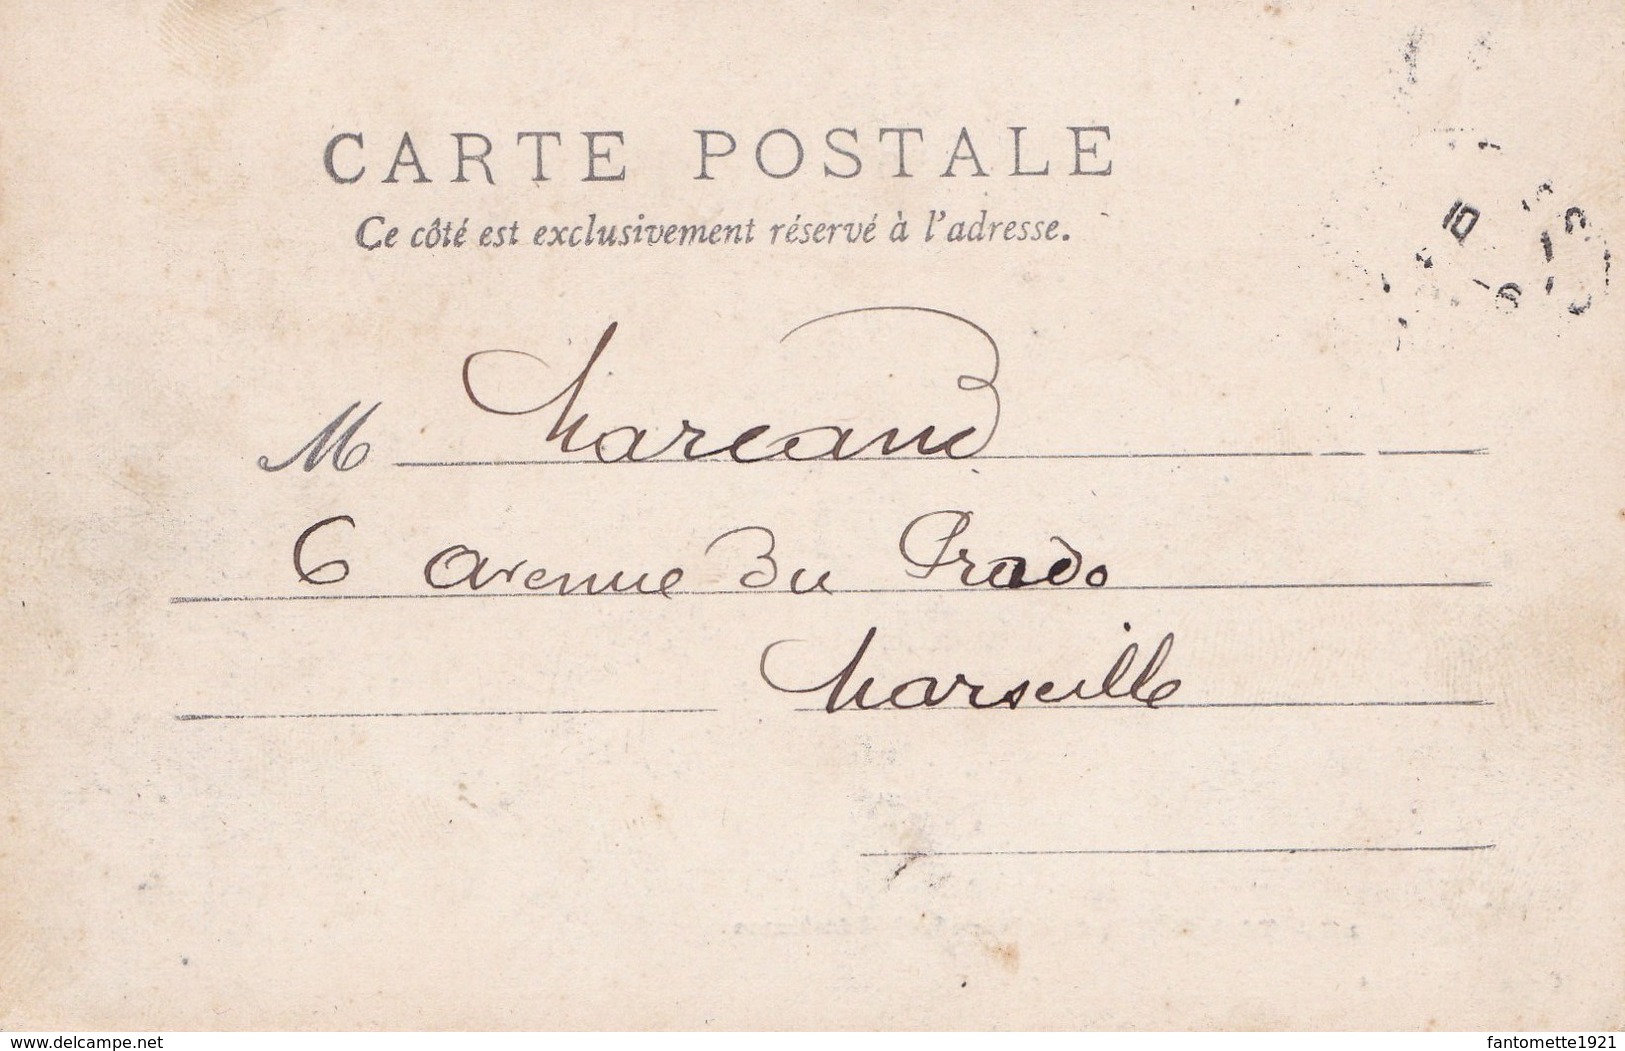 CARTE POSTALE
Ce côté est exclusivement réservé à l'adresse.
M Marcand
6 avenue Du Prado
Marseille
www.delcampe.net
fantomette1921